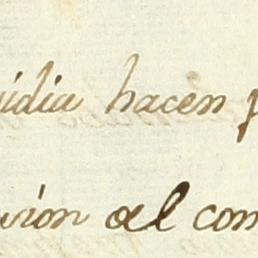 idia hacen p
sion al com